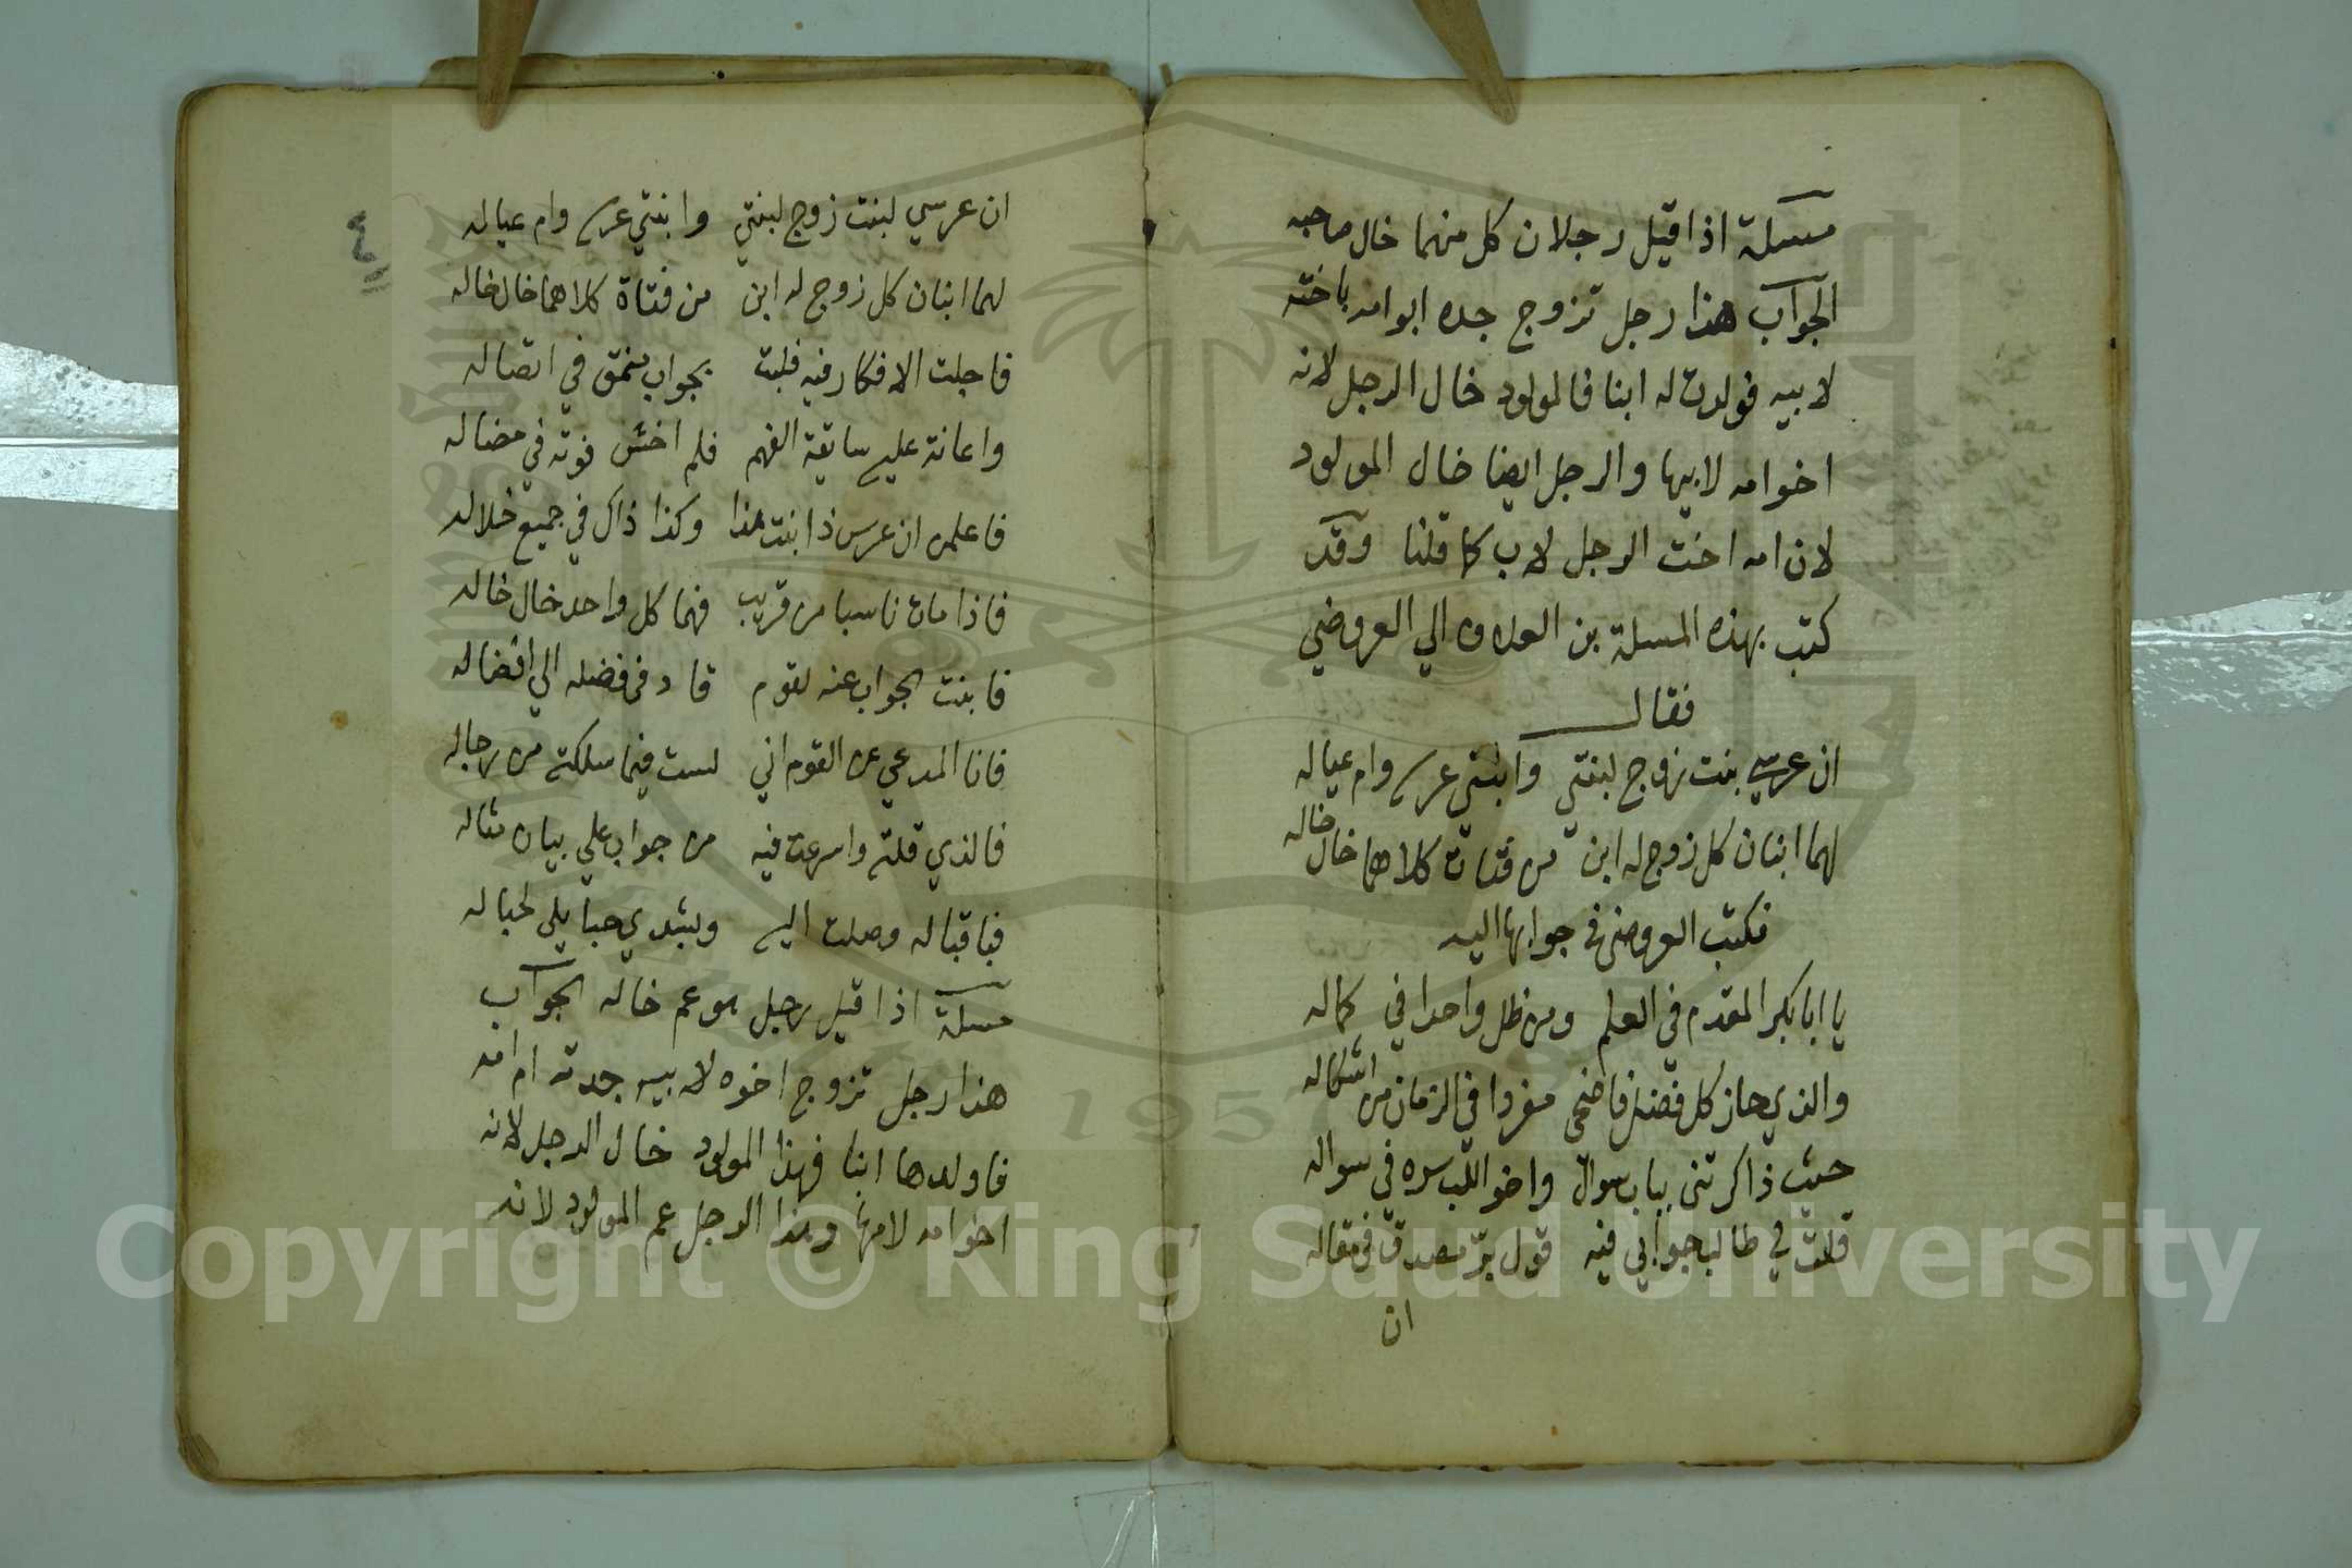 مسئلة اذا قيل رجلان كل منهما خال صاحبه
الجواب هذا رجل تزوج جده ابو امه باخته
لابيه فولدت له ابنا فالمولود خال الرجل لانه
اخو امه لابيها والرجل ايضا خال المولود
لان امه اخت الرجل لاب كما قلنا وقد
كتب بهذه المسلة بن العلاف الي العروضي
فقال
ان عرسي بنت زوج لبنتي وابنتي عرسه وام عياله
لهما ابنان كل زوج له ابن من فتات كلاهما خال خاله
فكتب العروضي في جوابها اليه
يا ابا بكر المقدم في العلم ومن ظل واحدا في كماله
والذي حاز كل فضل فاضحى مفردا في الزمان من اشكاله
حيث ذاكرتني بباب سوال واخو اللب سره في سواله
قلت في طالب جوابي فيه قول برّ مصدق في مقاله
ان
٤
ان عرسي لبنت زوج لبنتي وابنتي عرسه وام عياله
لهما ابنان كل زوج له ابن من فتاة كلاهما خال خاله
فاجلت الافكار فيه فلبت بجواب منمق في اتصاله
واعانة عليه سابقة الفهم فلم اخش فوته في مضاله
فاعلمن ان عرس ذا بنت هذا وكذا ذاك في جميع خلاله
فاذا مات ناسبا من قريب فهما كل واحد خال خاله
فابنت الجواب عنه لقوم قادني فضله الي افضاله
فانا المدعي من القوم اني لست فيما سلكته من رجاله
فالذي قلته واسرعت فيه من جواب علي بيان مثاله
فباقباله وصلت اليه ويبتدي حبا يلي لحباله
مسئلة اذا قيل رجل هو عم خاله الجواب
هذا رجل تزوج اخوه لابيه جدته ام امه
فاولدها ابنا فهذا المولود خال الرجل لانه
اخو امه لامها وهذا الرجل عم المولود لانه
Copyright © King Saud University
1957